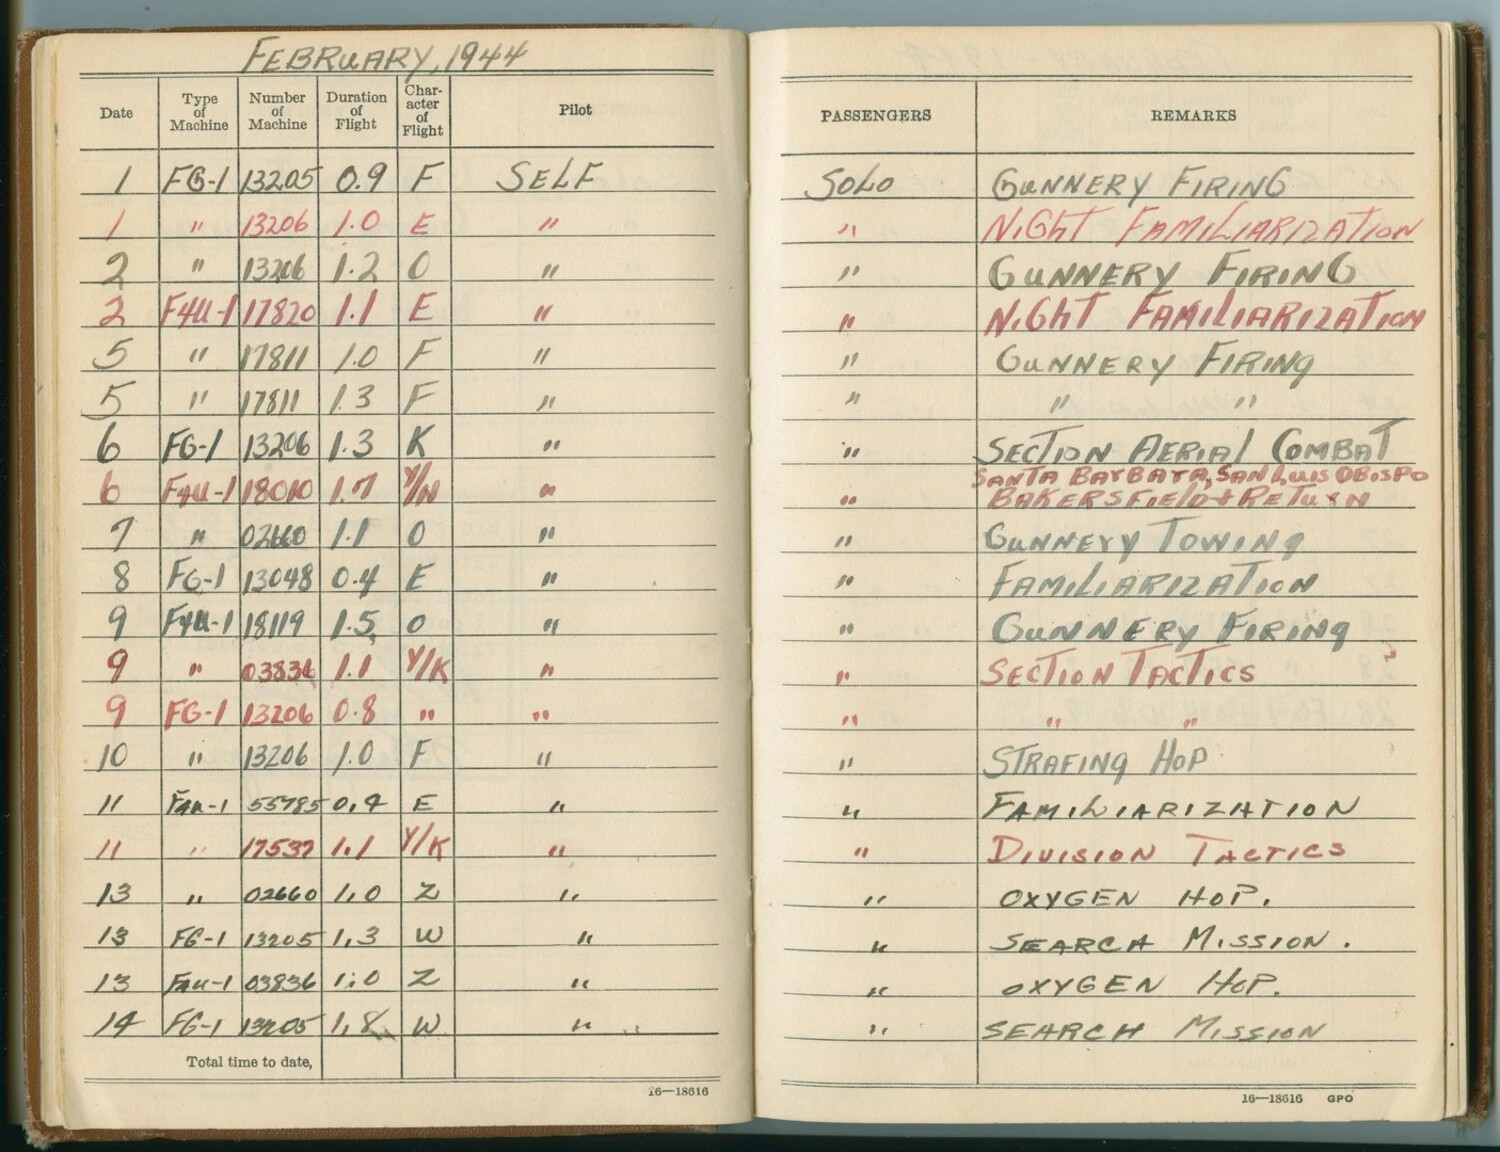 FEBRUARY, 1944
Date Type of Machine Number of Machine Duration of Flight Character of Flight Pilot PASSENGERS REMARKS
1 FG-1 13205 0.9 F SELF SOLO GUNNERY FIRING
1 " 13206 1.0 E " " NIGHT FAMILIARIZATION
2 " 13206 1.2 O " " GUNNERY FIRING
2 F4U-1 17820 1.1 E " " NIGHT FAMILIARIZATION
5 " 17811 1.0 F " " GUNNERY FIRING
5 " 17811 1.3 F " " " "
6 FG-1 13206 1.3 K " " SECTION AERIAL COMBAT
6 F4U-1 18010 1.7 Y/N " " SANTA BARBARA, SAN LUIS OBISPO
BAKERSFIELD & RETURN
7 " 02660 1.1 O " " GUNNERY TOWING
8 FG-1 13048 0.4 E " " FAMILIARIZATION
9 F4U-1 18119 1.5 O " " GUNNERY FIRING
9 " 03836 1.1 Y/K " " SECTION TACTICS
9 FG-1 13206 0.8 " " " " "
10 " 13206 1.0 F " " STRAFING HOP
11 F4U-1 55785 0.4 E " " FAMILIARIZATION
11 " 17537 1.1 Y/K " " DIVISION TACTICS
13 " 02660 1.0 Z " " OXYGEN HOP.
13 FG-1 13205 1.3 W " " SEARCH MISSION.
13 F4U-1 03836 1.0 Z " " OXYGEN HOP.
14 FG-1 13205 1.8 W " " SEARCH MISSION
Total time to date,
16—18616
16—18616 GPO